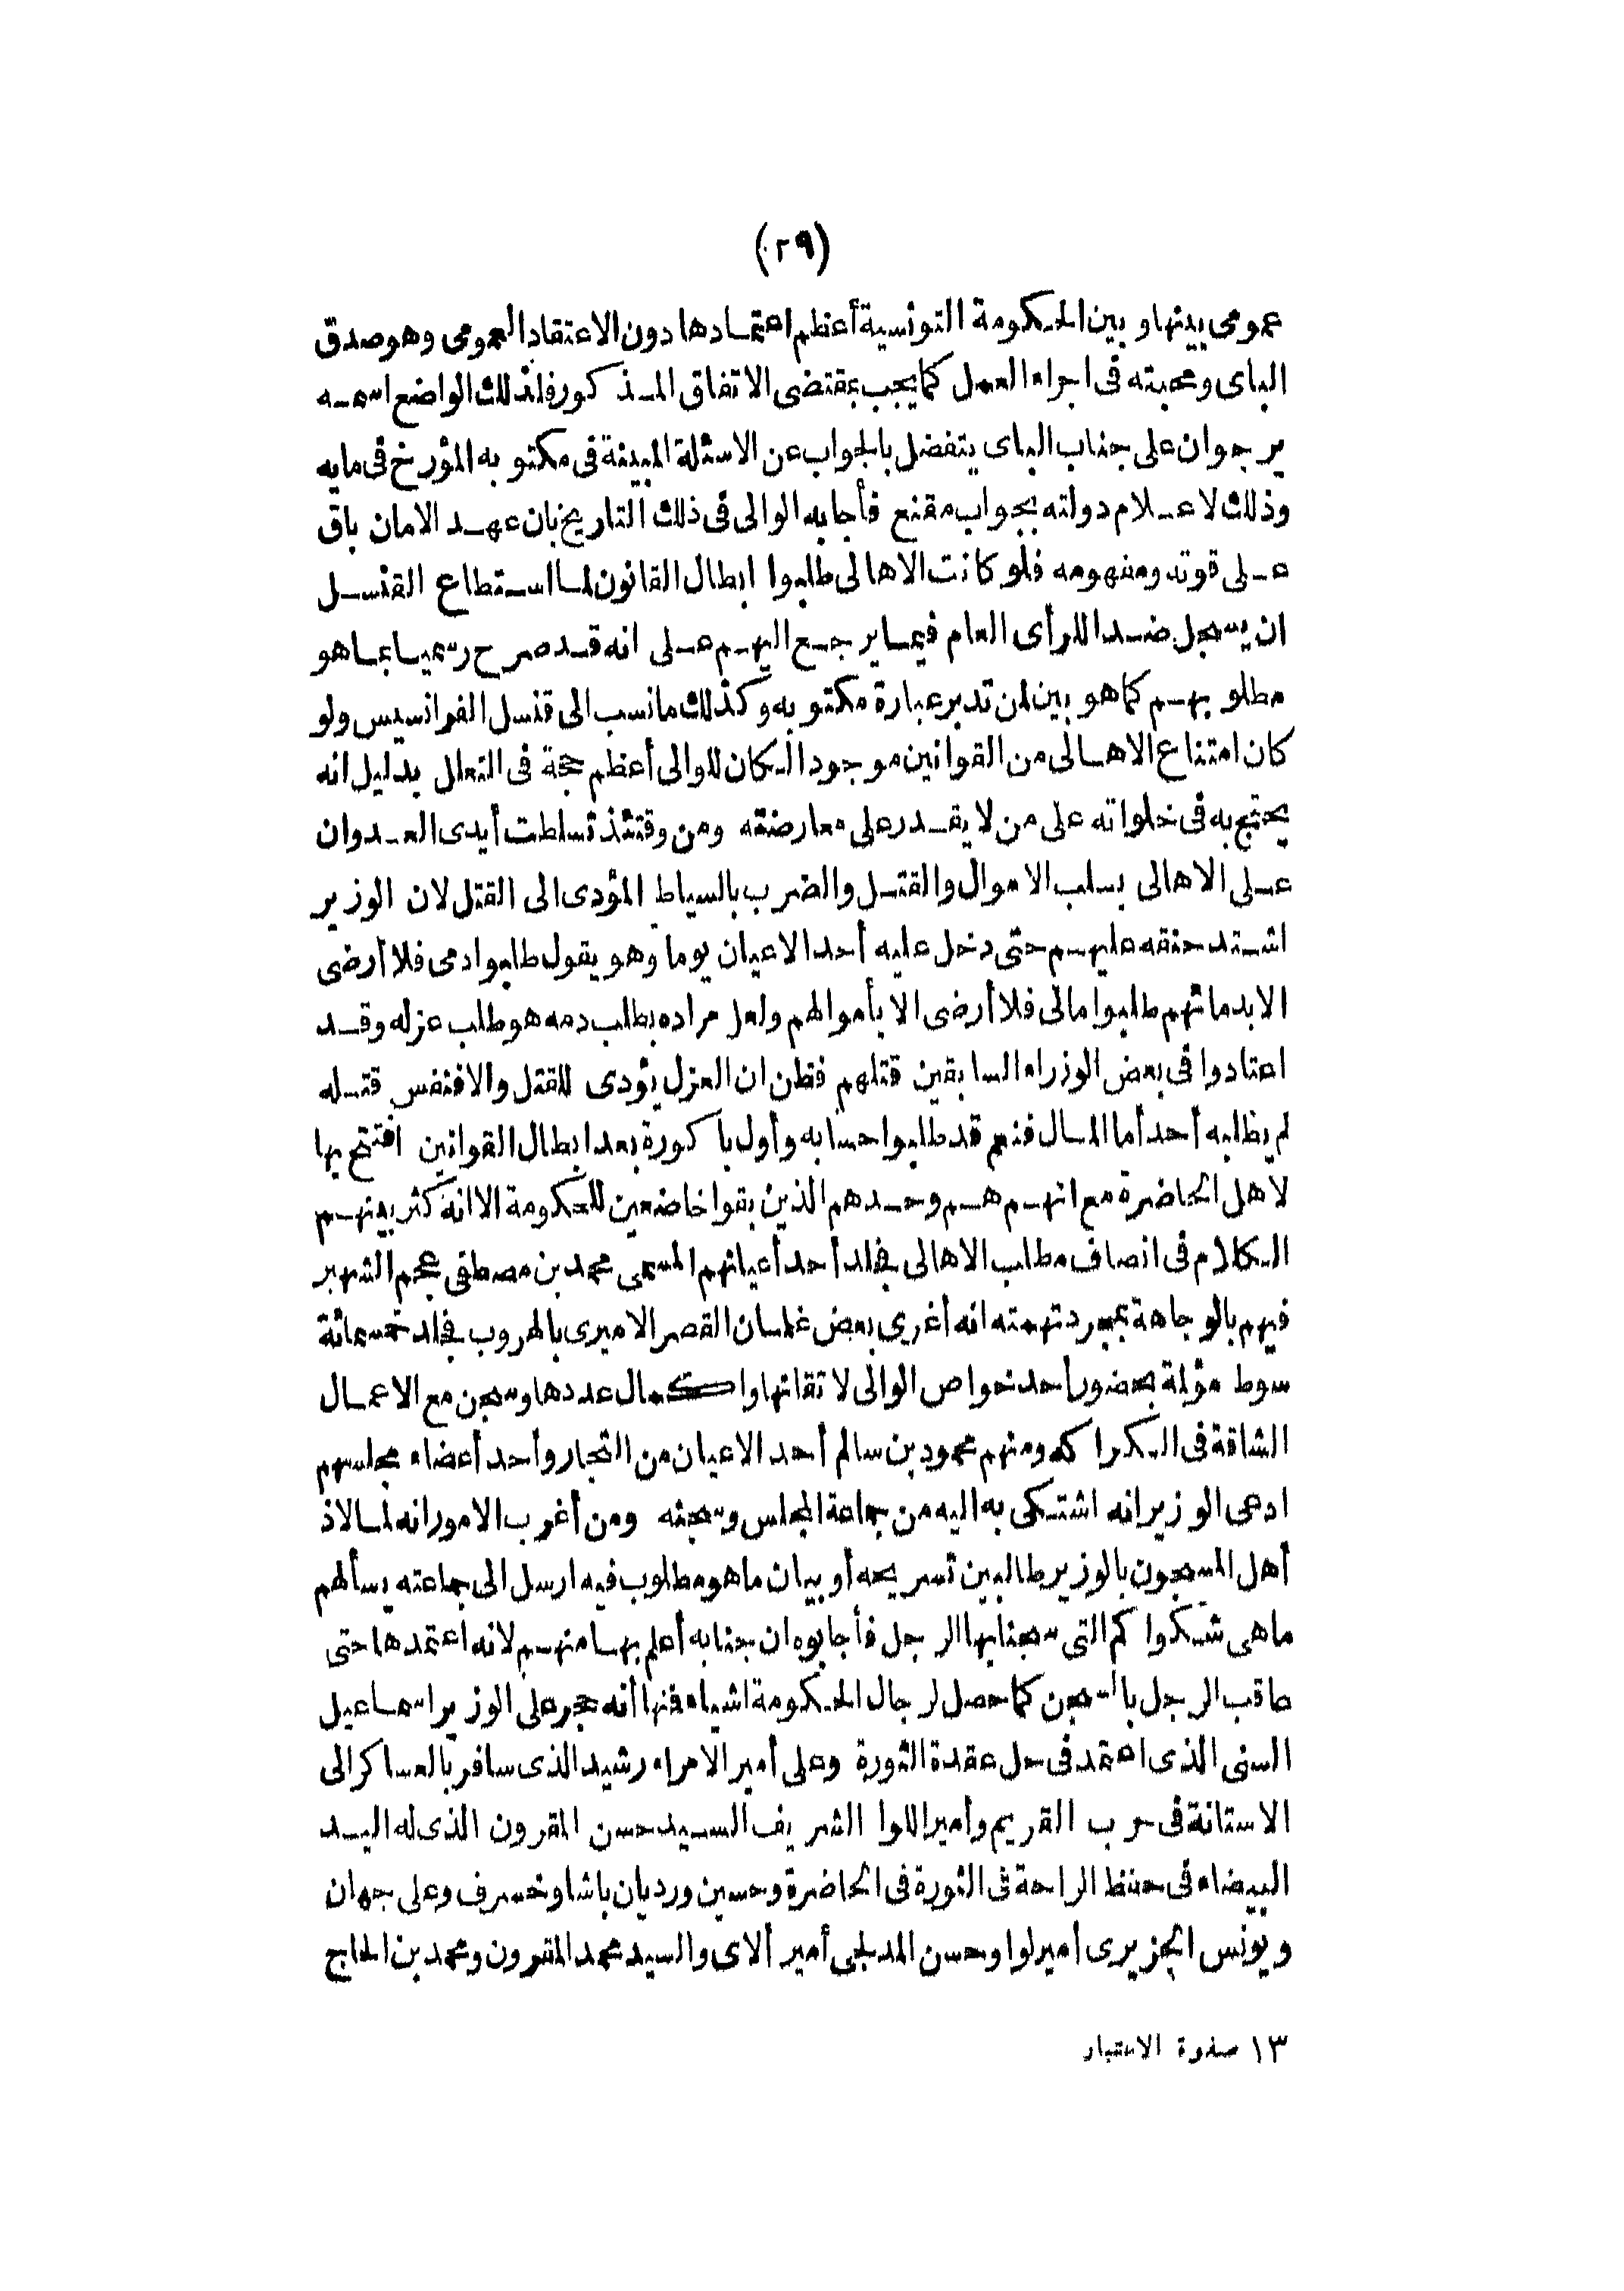 (٢٩)
عمومى بينها وبين الحكومة التونسية أعظم اعتمادها دون الاعتقاد العمومى وهو صدق
الباى ومحبته فى اجراء العمل كما يجب بمقتضى الاتفاق المذكور فلذلك الواضع اسمه
يرجو ان على جناب الباى يتفضل بالجواب عن الاسئلة المبينة فى مكتوبه المؤرخ فى مايه
وذلك لاعلام دولته بجواب مقنع فأجابه الوالى فى ذلك التاريخ بان عهد الامان باق
على قوته ومفهومه فلو كانت الاهالى طلبوا ابطال القانون لما استطاع القنسل
ان يسجل ضد الرأى العام فيما يرجع اليهم على انه قد صرح رسميا بما هو
مطلوبهم كما هو بين لمن تدبر عبارة مكتوبه وكذلك ما نسب الى قنسل الفرانسيس ولو
كان امتناع الاهالى من القوانين موجودا لكان للوالى أعظم حجة فى التعلل بدليل انه
يحتج به فى خلواته على من لا يقدر على معارضته ومن وقتئذ تسلطت أيدى العدوان
على الاهالى بسلب الاموال والقتل والضرب بالسياط المؤدى الى القتل لان الوزير
اشتد حنقه عليهم حتى دخل عليه أحد الاعيان يوما وهو يقول طلبوا دمى فلا أرضى
الا بدمائهم طلبوا مالى فلا أرضى الا بأموالهم ولعل مراده بطلب دمه هو طلب عزله وقد
اعتادوا فى بعض الوزراء السابقين قتلهم فظن ان العزل يؤدى للقتل والا فنفس قتله
لم يطلبه أحد أما المال فنعم قد طلبوا حسابه وأول باكورة بعد ابطال القوانين افتتح بها
لاهل الحاضرة مع انهم هم وحدهم الذين بقوا خاضعين للحكومة الا انه كثر بينهم
الكلام فى انصاف مطالب الاهالى فجلد أحد أعيانهم المسمى محمد بن مصطفى عجم الشهير
فيهم بالوجاهة بمجرد تهمته انه أغرى بعض غلمان القصر الاميرى بالهروب فجلد خمسمائة
سوط مؤلمة بحضور أحد خواص الوالى لاتقانها واكمال عددها وسجن مع الاعمال
الشاقة فى الكراكه ومنهم محمود بن سالم أحد الاعيان من التجار وأحد أعضاء مجلسهم
ادعى الوزير انه اشتكى به اليه من جماعة المجلس وسجنه ومن أغرب الامور انه لما لاذ
أهل المسجون بالوزير طالبين تسريحه أو بيان ما هو مطلوب فيه ارسل الى جماعته يسألهم
ما هى شكواكم التى سجنا بها الرجل فأجابوه ان جنابه أعلم بها منهم لانه اعتمدها حتى
عاقب الرجل بالسجن كما حصل لرجال الحكومة اشياء فنها أنه حجر على الوزير اسماعيل
السنى الذى اعتمد فى حل عقدة الثورة وعلى أمير الامراء رشيد الذى سافر بالعساكر الى
الاستانة فى حرب القريم وأمير اللوا الشريف السيد حسن المقرون الذى له اليد
البيضاء فى حفظ الراحة فى الثورة فى الحاضرة وحسين ورديان باشا وخسرف وعلى جهان
ويونس الجزيرى أمير لوا وحسن المدلجى أمير ألاى والسيد محمد المقرون ومحمد بن الحاج
١٣ صفوة الاعتبار